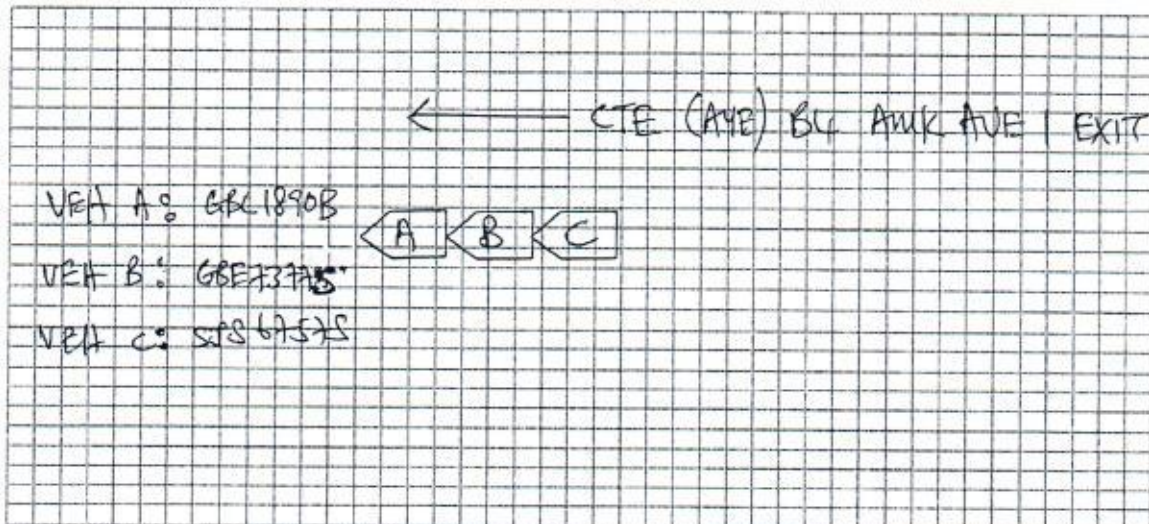 ← CTE (AYE) B4 AMK AVE 1 EXIT
VEH A: GBC1890B
A B C
VEH B: GBE7377S
VEH C: SJS6757S